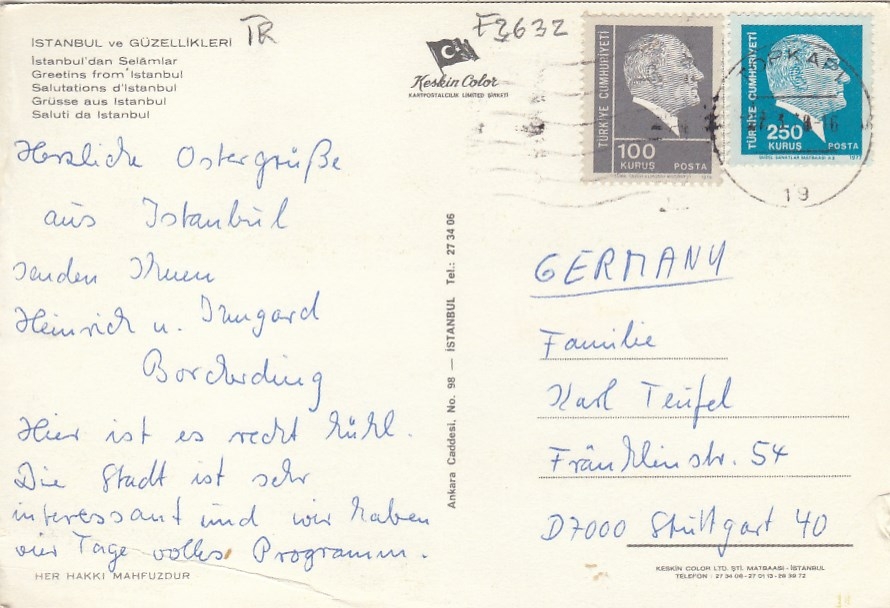 İSTANBUL ve GÜZELLİKLERİ
İstanbul'dan Selâmlar
Greetins from İstanbul
Salutations d'İstanbul
Grüsse aus Istanbul
Saluti da Istanbul
TR
F3632
Keskin Color
KARTPOSTALCILIK LIMITED ŞİRKETİ
TÜRKİYE CUMHURİYETİ
100
KURUŞ
POSTA
TÜRKİYE CUMHURİYETİ
250
KURUŞ
POSTA
1977
TOPKAPI
19
Herzliche Ostergrüße
aus Istanbul
senden Ihnen
Heinrich u. Irmgard
Borcherding
Hier ist es recht kühl.
Die Stadt ist sehr
interessant und wir haben
vier Tage volles Programm.
HER HAKKI MAHFUZDUR
Ankara Caddesi, No. 98 — İSTANBUL Tel.: 27 34 06
GERMANY
Familie
Karl Teufel
Fränklinstr. 54
D7000 Stuttgart 40
KESKİN COLOR LTD. ŞTİ. MATBAASI - İSTANBUL
TELEFON : 27 34 06 - 27 01 13 - 28 39 72